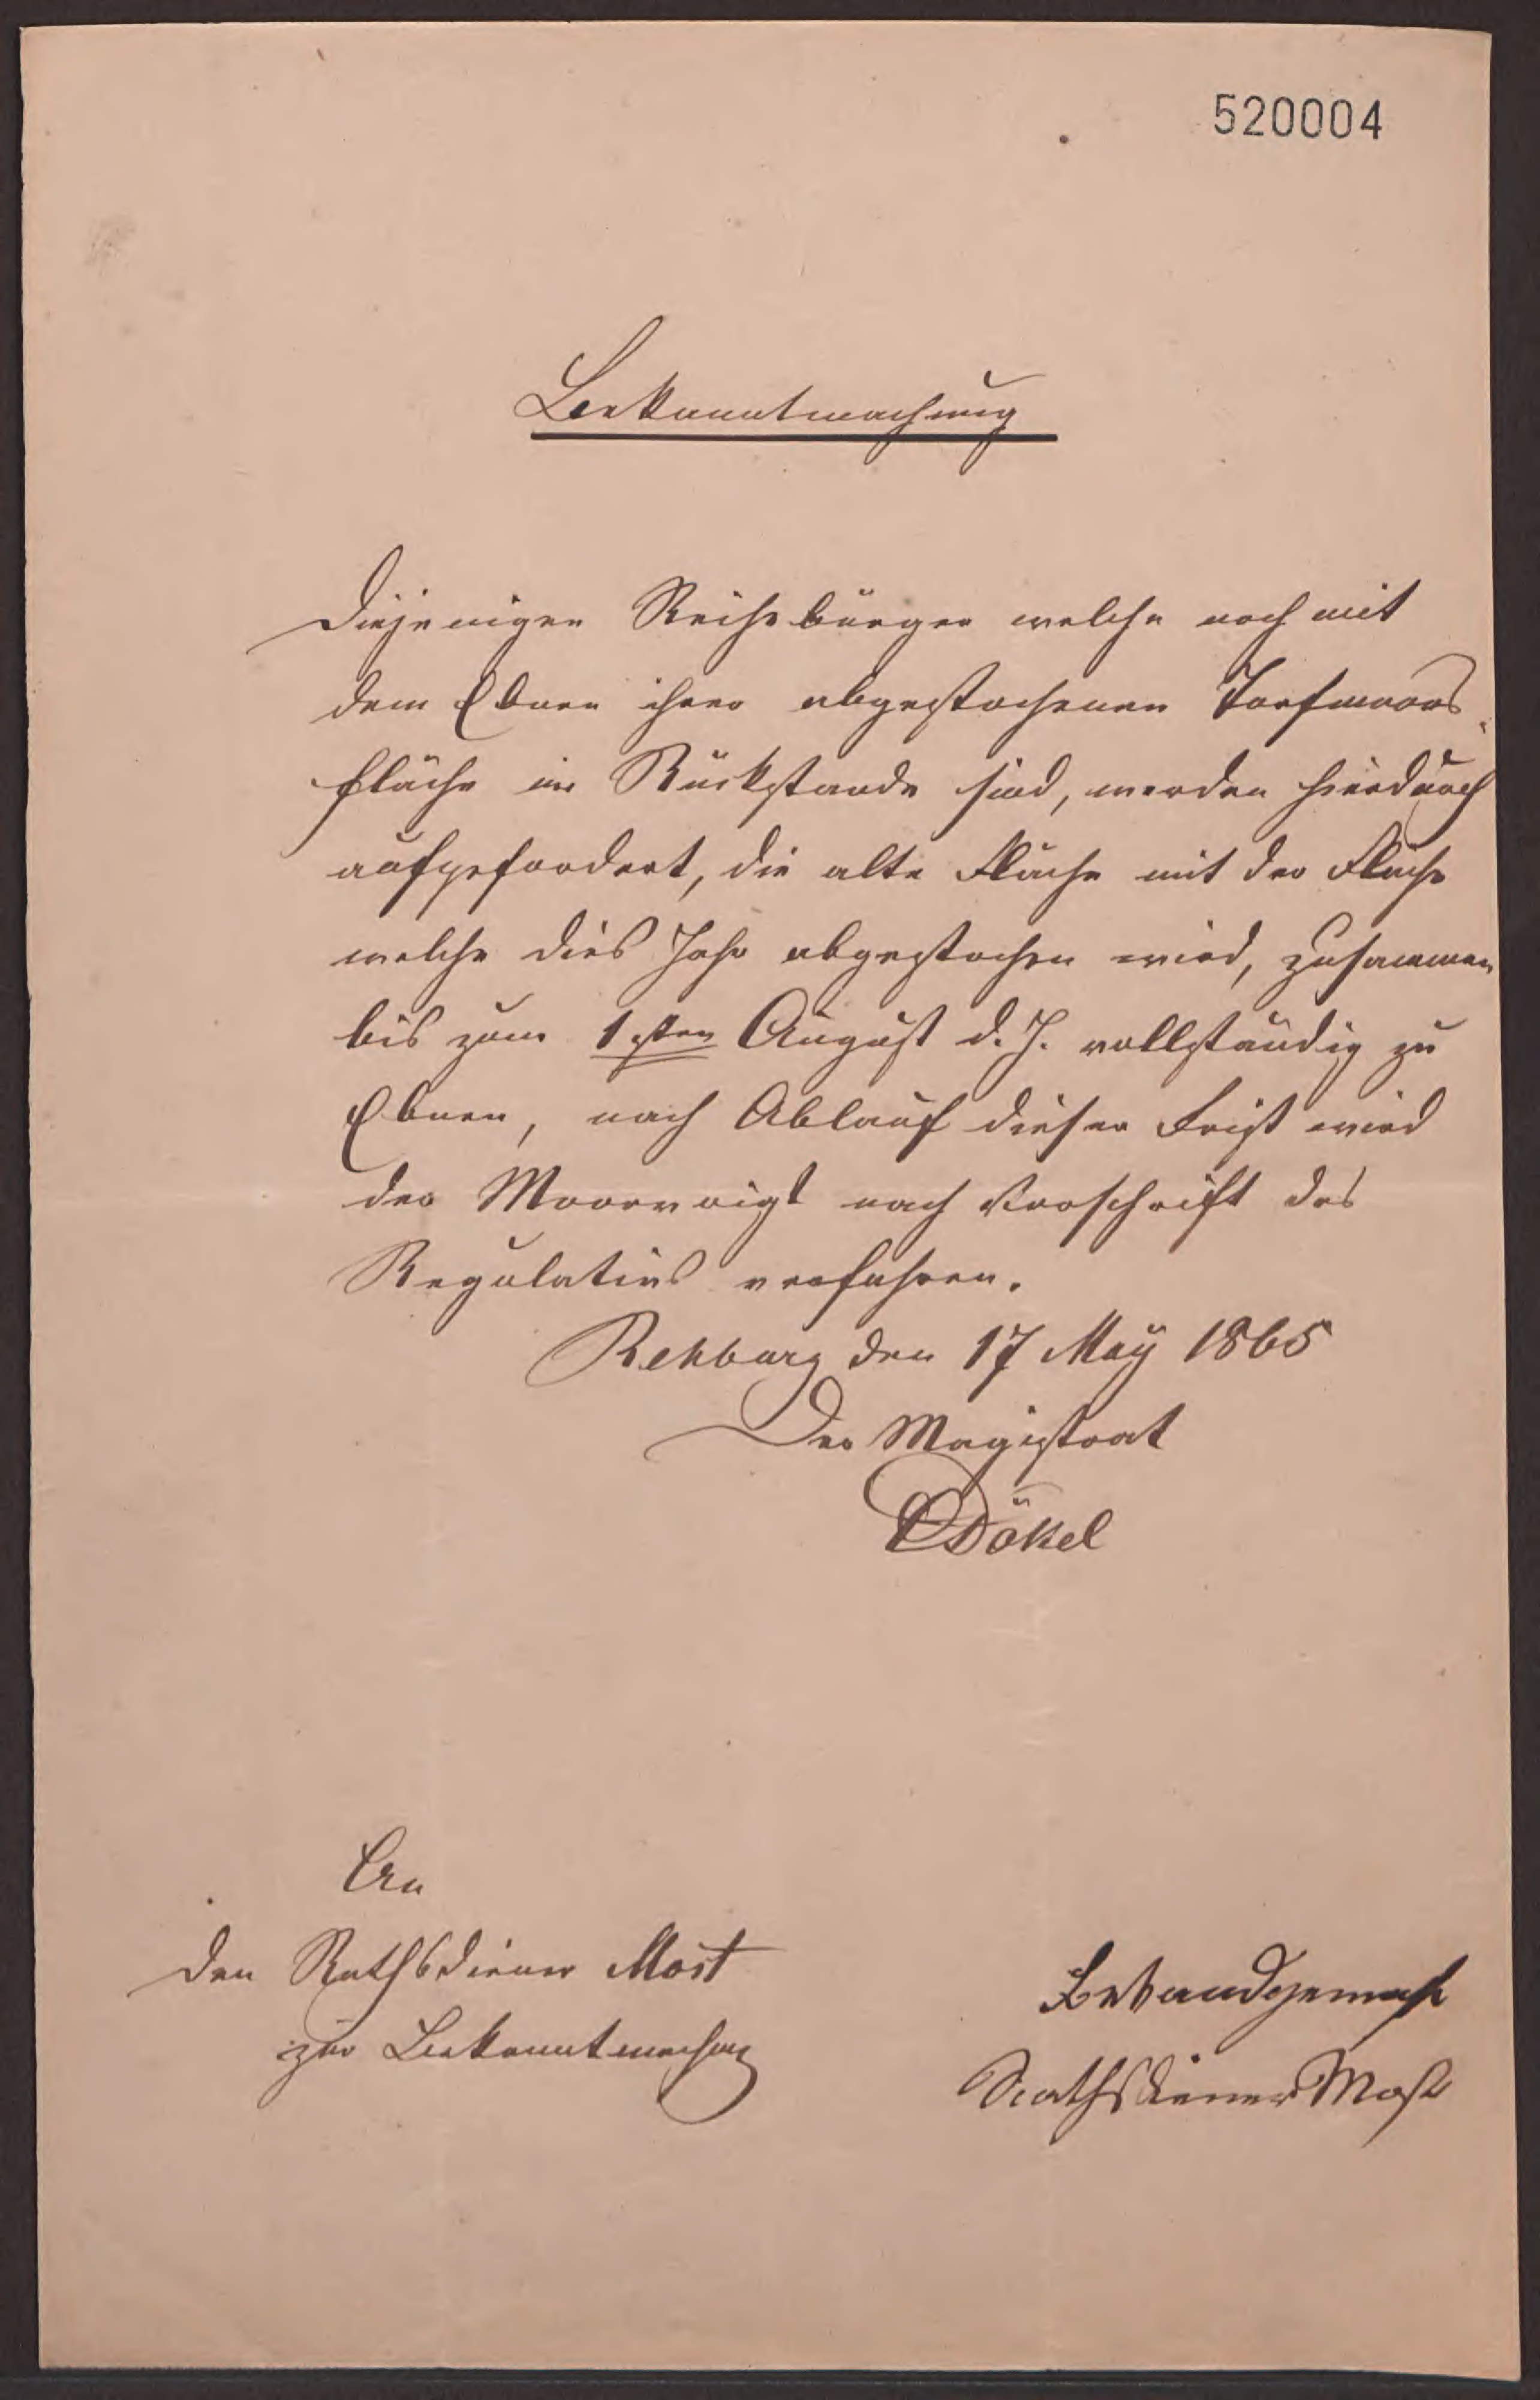 520004
Bekanntmachung
Diejenigen Reihebürger welche noch mit
dem Ebnen ihrer abgestochenen Torfmoors
fläche im Rückstande sind, werden hierdurch
aufgefordert, die alte Fläche mit der Fläche
welche dies Jahr abgestochen wird, zusammen
bis zum 1sten August d. J. vollständig zu
Ebnen, nach Ablauf dieser Frist wird
der Moorvoigt nach Vorschrift des
Regulativs verfahren.
Rehburg den 17 May 1865
Der Magistrat
Dökel
An
den Rathsdiener Most
zur Bekanntmachung
Bekandgemach
Rathsdiener Most